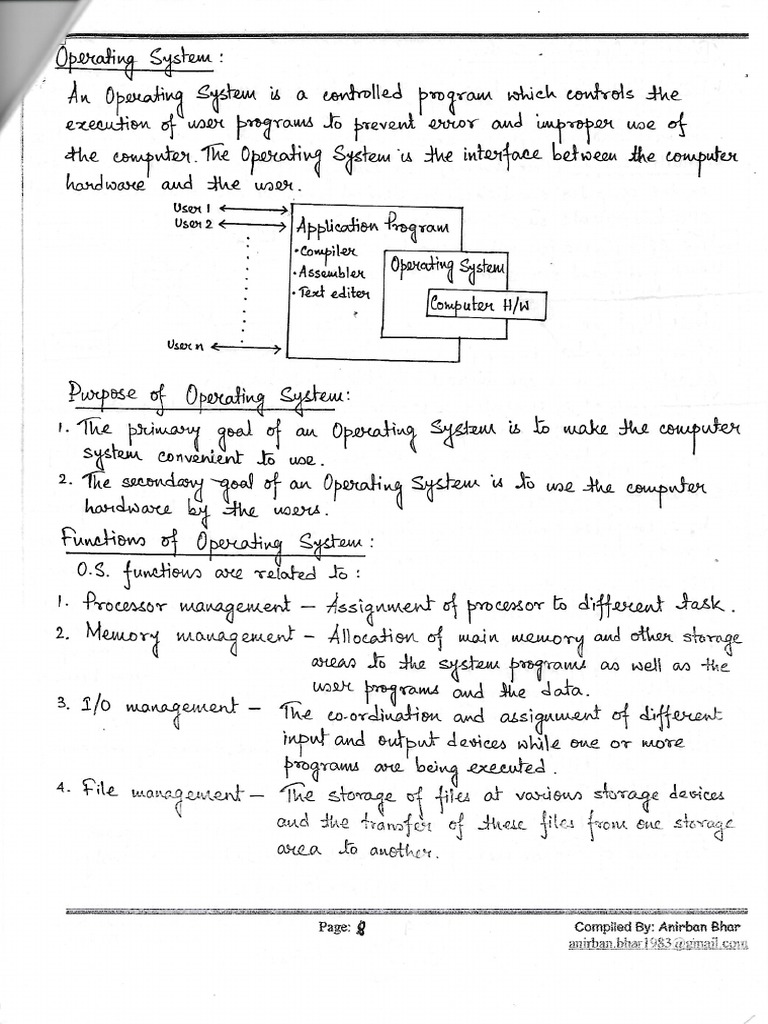 Operating System :
An Operating System is a controlled program which controls the
execution of user programs to prevent error and improper use of
the computer. The Operating System is the interface between the computer
hardware and the user.
User 1
User 2
User n
Application Program
• Compiler
• Assembler
• Text editer
Operating System
Computer H/W
Purpose of Operating System:
1. The primary goal of an Operating System is to make the computer
system convenient to use.
2. The secondary goal of an Operating System is to use the computer
hardware by the users.
Functions of Operating System:
O.S. functions are related to :
1. Processor management – Assignment of processor to different task.
2. Memory management – Allocation of main memory and other storage
areas to the system programs as well as the
user programs and the data.
3. I/O management – The co-ordination and assignment of different
input and output devices while one or more
programs are being executed.
4. File management – The storage of files at various storage devices
and the transfer of these files from one storage
area to another.
Page: 8
Compiled By: Anirban Bhar
anirban.bhar1983@gmail.com